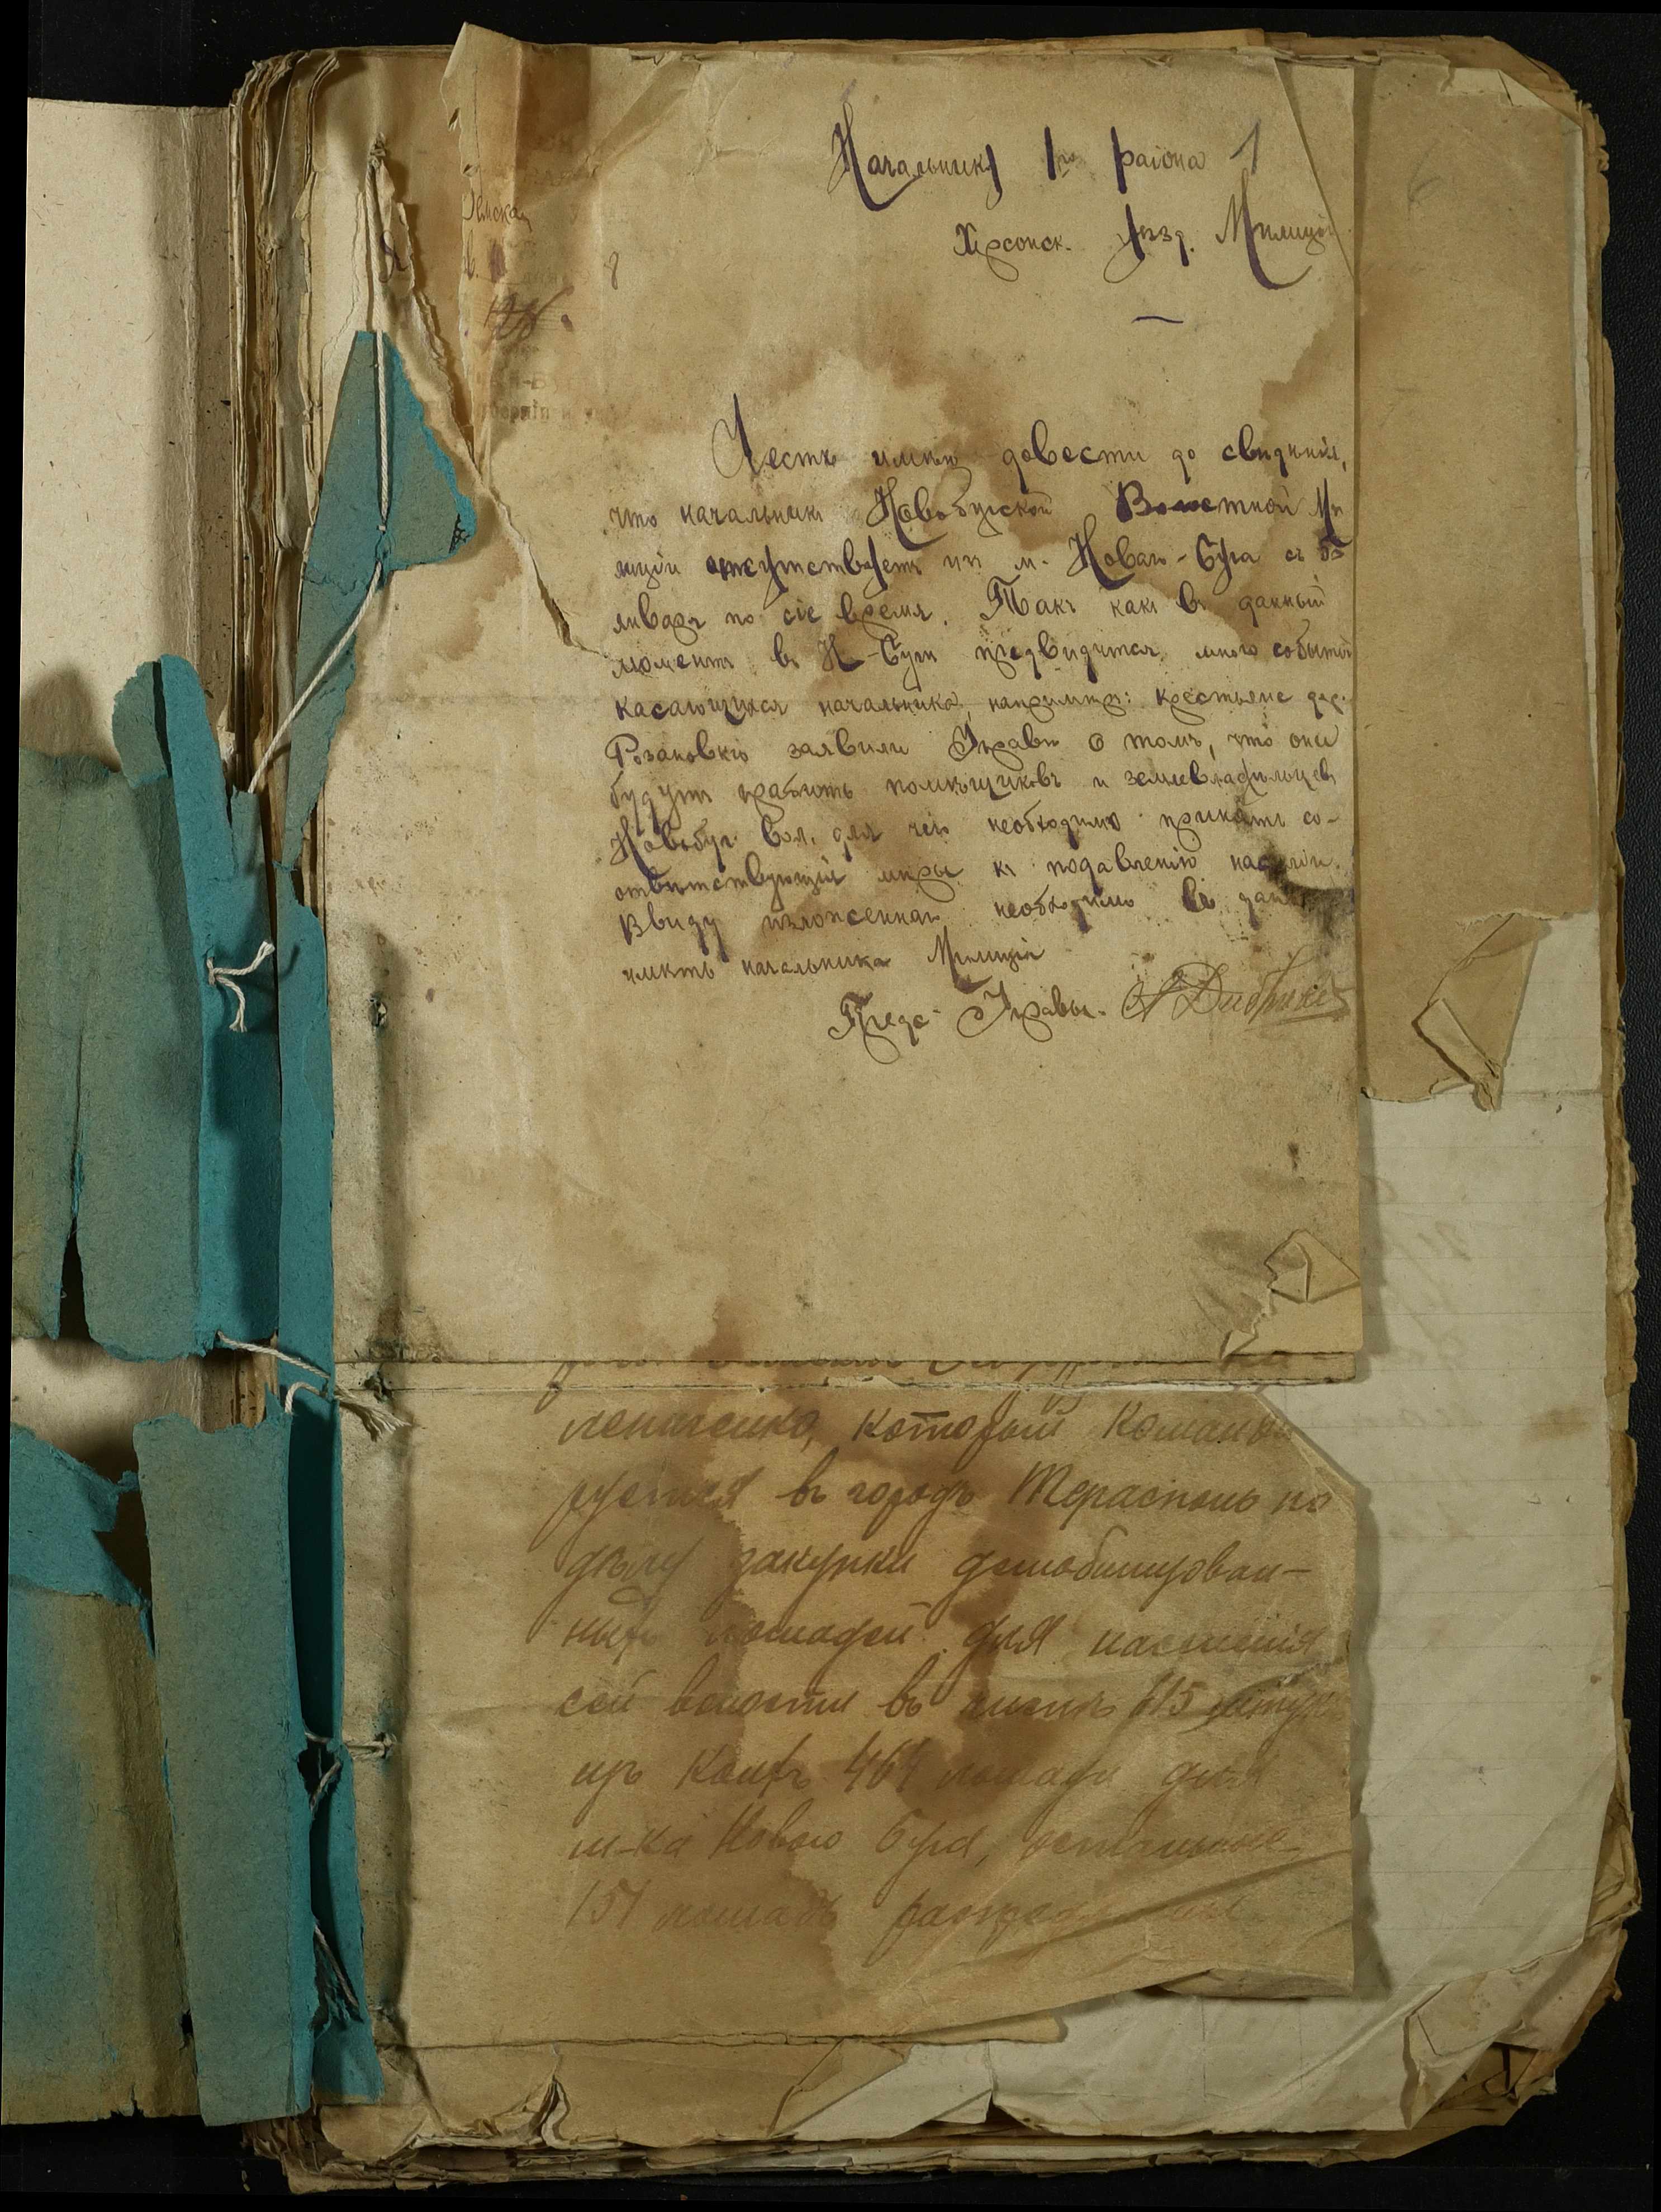 Начальнику 1го района 1
Херсонск. уѣзд. Милиціи
6
Земская
Честь имѣю довести до свидѣнія,
что начальникъ Новобугской Волостной Ми
лиціи отсутствуетъ изъ м. Новаго-Буга съ
января по сіе время. Такъ какъ въ данный
моментъ въ Н-Буги предвидится много событій
касающихся начальника, напримѣръ: крестьяне дер.
Розановкѣ заявили Управѣ о томъ, что они
будутъ грабить помѣщиковъ и землевладѣльцевъ
Новобуг. вол. для чего необходимо принять со-
отвѣтствующій мѣры къ подавленію насилій.
Ввиду изложеннаго необходимо въ дан
имѣть начальника Милиціи
Предс. Управы.
который командi
руется въ городъ Тераспонь по
дѣлу закупки демобилизован-
ныхъ лошадей для населенія
сей волости въ числѣ 615 штукъ
изъ коихъ 464 лошади для
м-ка Новаго Буга, остальные
151 лошадь